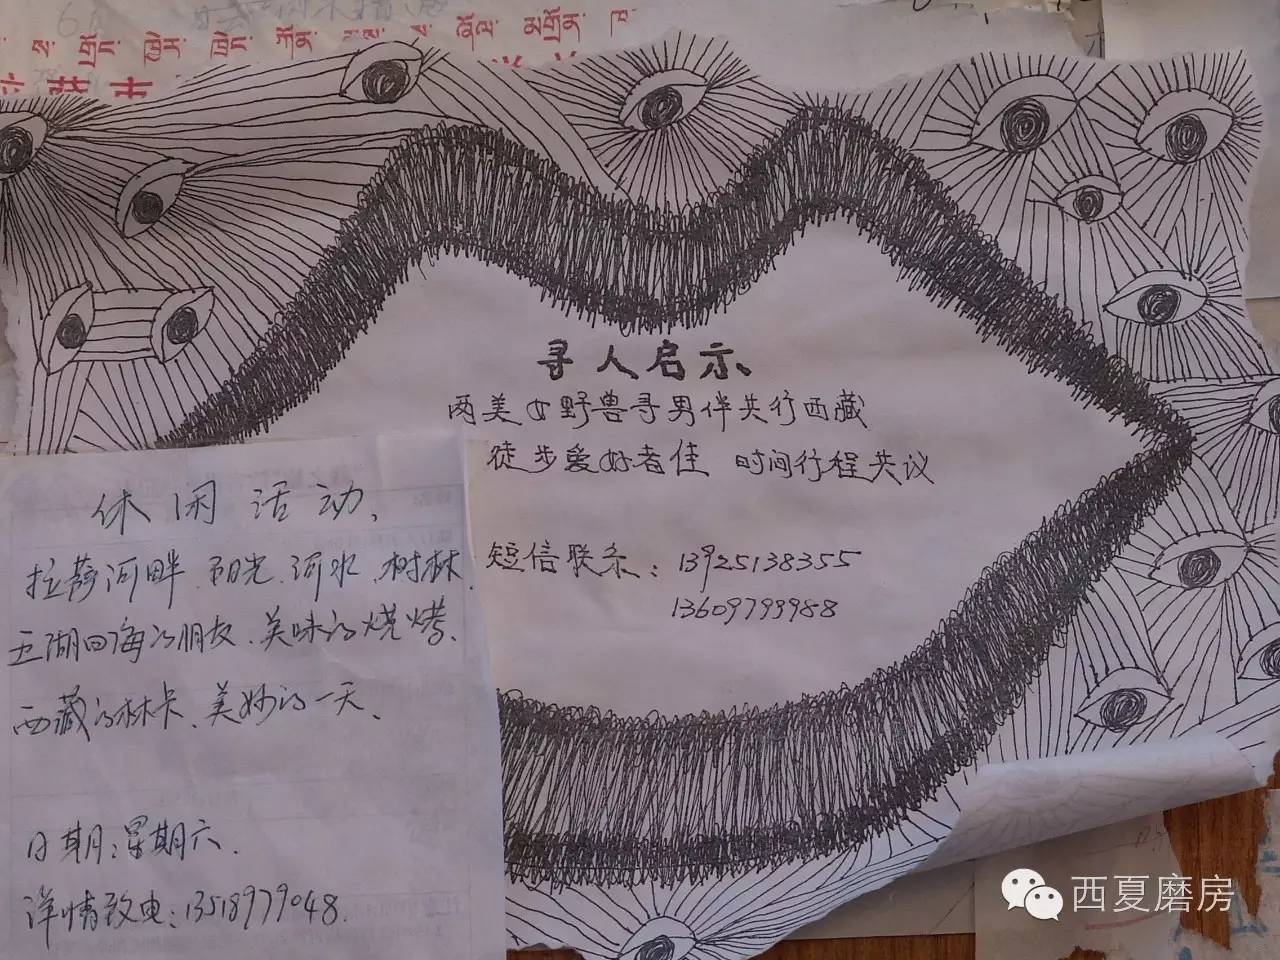 ས་ གྲོང་ ཁྱེར་ ཁྱེང་ ཀོན་
寻人启示
两美女野兽寻男伴共行西藏
徒步爱好者佳 时间行程共议
短信联系：13925138355
13609793988
休闲活动、
拉萨河畔、阳光、河水、树林、
五湖四海的朋友、美味的烧烤、
西藏的林卡、美妙的一天、
日期：星期六.
详情致电：13518979048.
西夏磨房